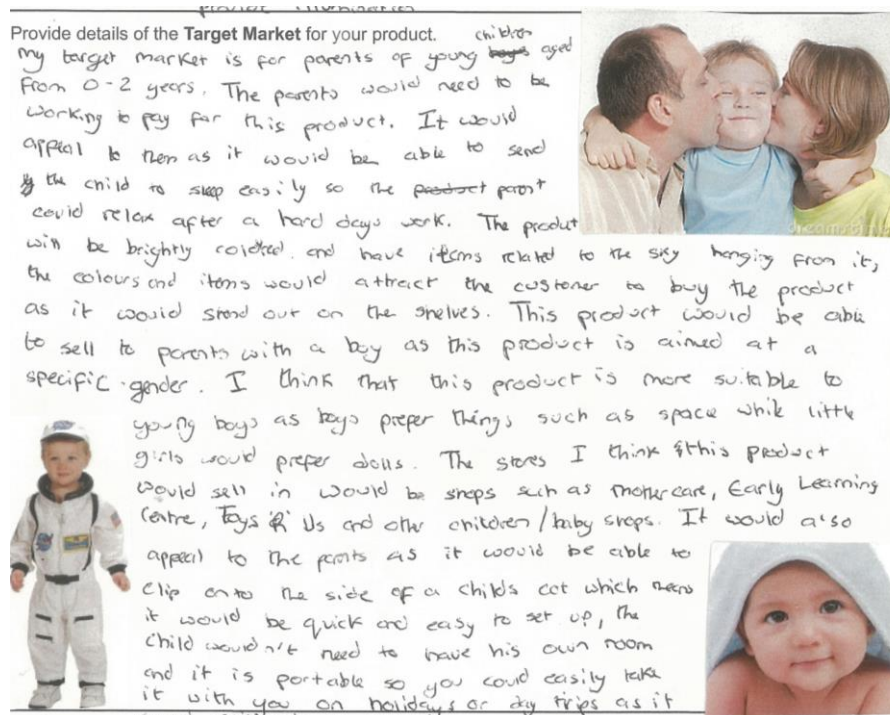 Provide details of the Target Market for your product.
children
My target market is for parents of young boys aged
from 0-2 years. The parents would need to be
working to pay for this product. It would
appeal to them as it would be able to send
the child to sleep easily so the product parent
could relax after a hard days work. The product
will be brightly colored and have items related to the sky hanging from it,
the colours and items would attract the customer to buy the product
as it would stand out on the shelves. This product would be able
to sell to parents with a boy as this product is aimed at a
specific gender. I think that this product is more suitable to
young boys as boys prefer things such as space while little
girls would prefer dolls. The stores I think this product
would sell in would be shops such as mothercare, Early Learning
Centre, Toys 'R' Us and other children/baby shops. It would also
appeal to the parents as it would be able to
clip onto the side of a childs cot which means
it would be quick and easy to set up, the
child wouldn't need to have his own room
and it is portable so you could easily take
it with you on holidays or day trips as it